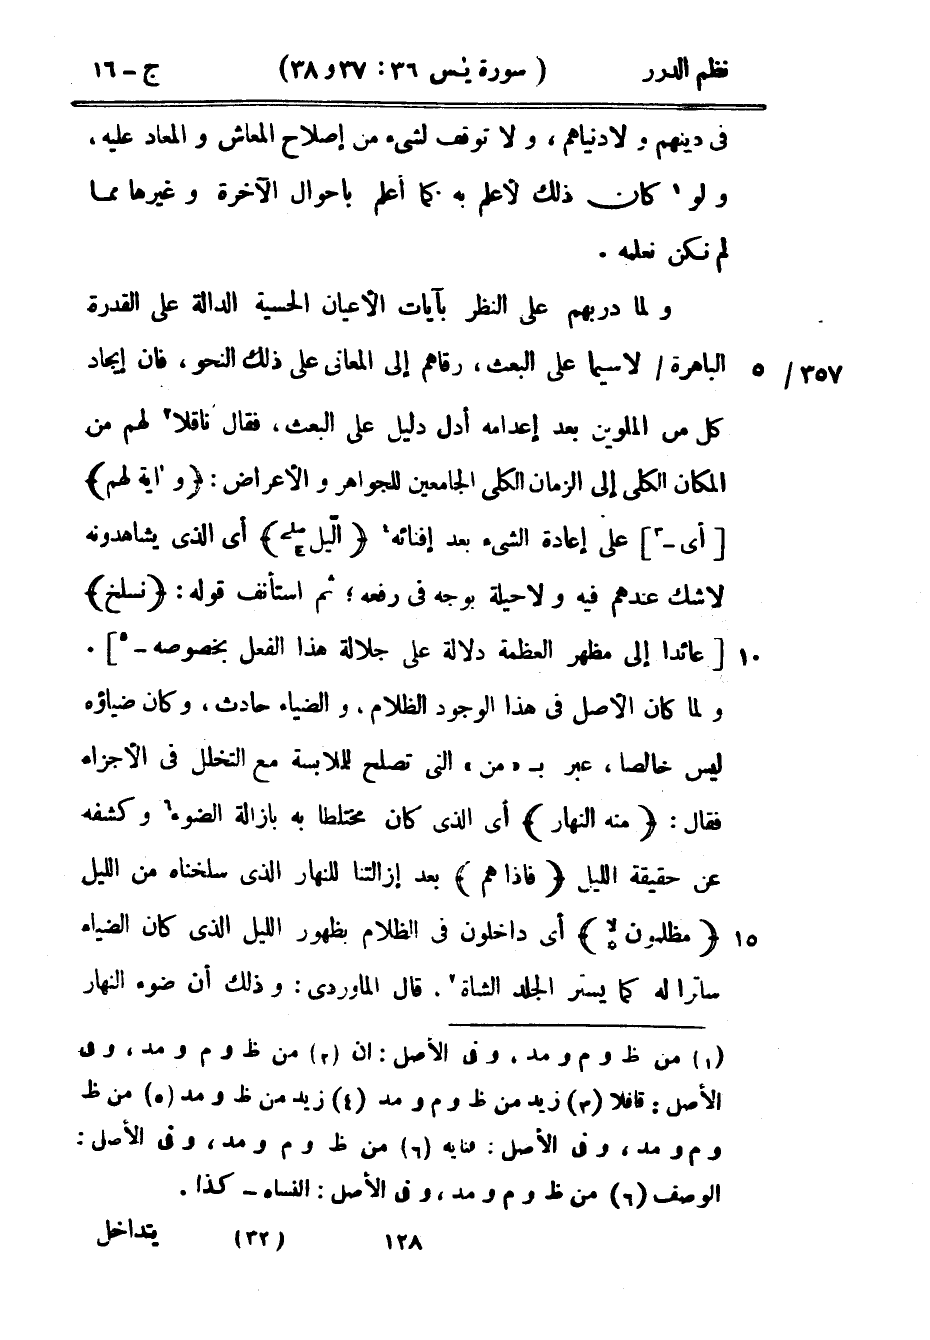 نظم الدرر ( سورة يٰس ٣٦ : ٣٧ و ٣٨ ) ج – ١٦
فى دينهم و لا دنياهم ، و لا توقف لشىء من إصلاح المعاش و المعاد عليه ،
و لو ١ كان ذلك لأعلم به كما أعلم باحوال الآخرة و غيرها مما
لم نكن نعلمه .
و لما دربهم على النظر بآيات الأعيان الحسية الدالة على القدرة
الباهرة / لا سيما على البعث ، رقاهم إلى المعانى على ذلك النحو ، فان إيجاد ٥ / ٣٥٧
كل من الملوين بعد إعدامه أدل دليل على البعث ، فقال ناقلا ٢ لهم من
المكان الكلى إلى الزمان الكلى الجامعين للجواهر و الأعراض : ﴿ و ءاية لهم ﴾
[ أى – ٣ ] على إعادة الشىء بعد إفنائه ٤ ﴿ الّيل صلے ج ﴾ أى الذى يشاهدونه
لا شك عندهم فيه و لا حيلة بوجه فى رفعه ؛ ثم استأنف قوله : ﴿ نسلخ ﴾
[ عائدا إلى مظهر العظمة دلالة على جلالة هذا الفعل بخصوصه – ٥ ] . ١٠
و لما كان الأصل فى هذا الوجود الظلام ، و الضياء حادث ، و كان ضياؤه
ليس خالصا ، عبر بـ « من » التى تصلح للملابسة مع التخلل فى الأجزاء
فقال : ﴿ منه النهار ﴾ أى الذى كان مختلطا به بازالة الضوء ٦ و كشفه
عن حقيقة الليل ﴿ فاذا هم ﴾ بعد إزالتنا للنهار الذى سلخناه من الليل
﴿ مظلمون لا ﴾ أى داخلون فى الظلام بظهور الليل الذى كان الضياء ١٥
ساترا له كما يستر الجلد الشاة ٧ . قال الماوردى : و ذلك أن ضوء النهار
(١) من ظ و م و مد ، و فى الأصل : ان (٢) من ظ و م و مد ، و فى
الأصل : قافلا (٣) زيد من ظ و م و مد (٤) زيد من ظ و مد (٥) من ظ
و م و مد ، و فى الأصل : فنايه (٦) من ظ و م و مد ، و فى الأصل :
الوصف (٦) من ظ و م و مد ، و فى الأصل : النساء – كذا .
١٢٨ (٣٢) يتداخل